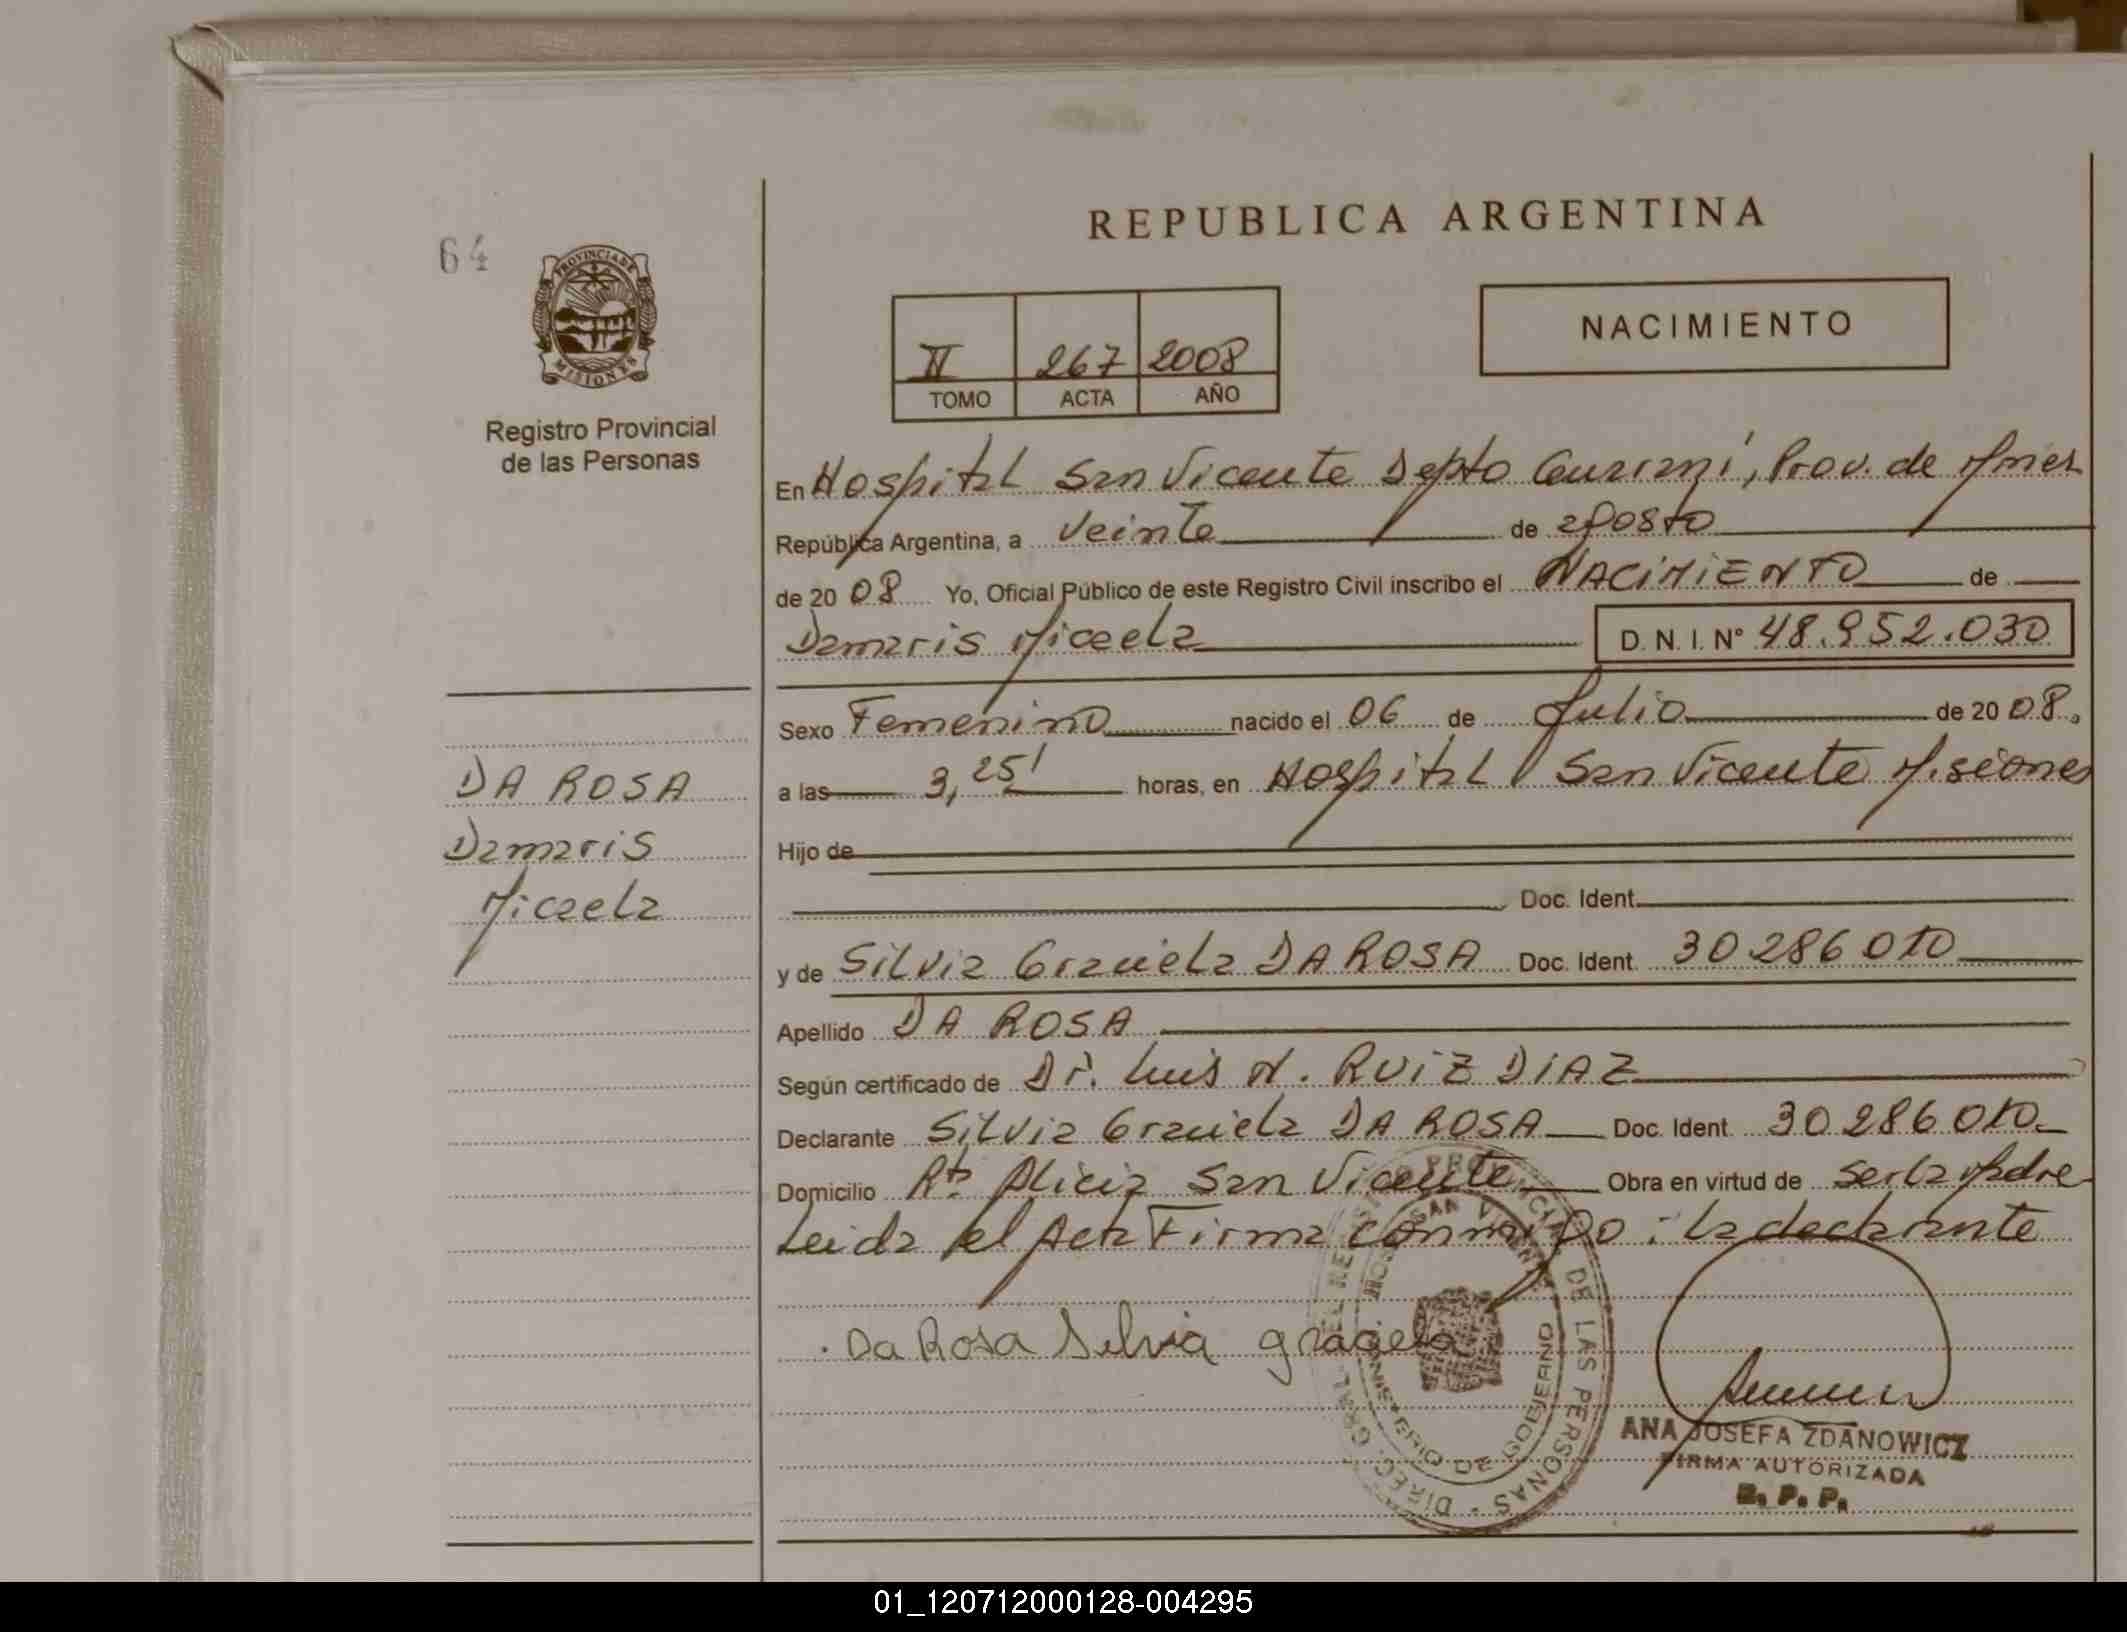 64
PROVINCIA DE
MISIONES
Registro Provincial
de las Personas
REPUBLICA ARGENTINA
NACIMIENTO
II 267 2008
TOMO ACTA AÑO
En Hospital San Vicente Depto Guaraní, Prov. de Mnes
República Argentina, a veinte de agosto
de 20 08 Yo, Oficial Público de este Registro Civil inscribo el NACIMIENTO de
Damaris Micaela D. N. I. N° 48.952.030
Sexo Femenino nacido el 06 de Julio de 20 08.
a las 3,25' horas, en Hospital San Vicente Misiones
Hijo de
Doc. Ident.
y de Silvia Graciela DA ROSA Doc. Ident. 30286010
Apellido DA ROSA
Según certificado de Dr. Luis N. RUIZ DIAZ
Declarante Silvia Graciela DA ROSA Doc. Ident. 30286010
Domicilio Rta Alicia San Vicente Obra en virtud de ser la Madre
Leida el Acta Firma conmigo: la declarante
DA ROSA
Damaris
Micaela
Da Rosa Silvia graciela
DIREC. GRAL. DEL REGISTRO PROVINCIAL DE LAS PERSONAS
HOSP. SAN VICENTE
MINISTERIO DE GOBIERNO
ANA JOSEFA ZDANOWICZ
FIRMA AUTORIZADA
R. P. P.
01_120712000128-004295